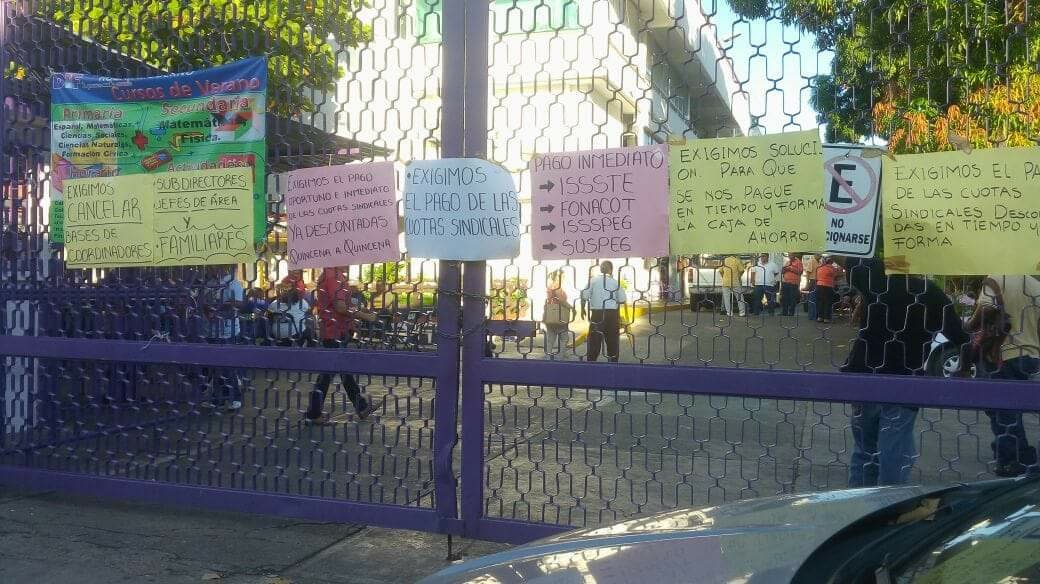 DIF
Cursos de Verano
Primaria
Español, Matemáticas,
Ciencias Sociales,
Ciencias Naturales,
Formación Cívica
Secundaria
Matemáticas
Física.
EXIGIMOS
CANCELAR
BASES DE
COORDINADORES
• SUBDIRECTORES
JEFES DE ÁREA
Y
• FAMILIARES
EXIGIMOS EL PAGO
OPORTUNO E INMEDIATO
DE LAS CUOTAS SINDICALES
YA DESCONTADAS
QUINCENA A QUINCENA
• EXIGIMOS
EL PAGO DE LAS
CUOTAS SINDICALES
PAGO INMEDIATO
→ ISSSTE
→ FONACOT
→ ISSSPEG
→ SUSPEG
EXIGIMOS SOLUCI
ON. PARA QUE
SE NOS PAGUE
EN TIEMPO Y FORMA
LA CAJA DE
AHORRO.
E
NO
CIONARSE
EXIGIMOS EL PA
DE LAS CUOTAS
SINDICALES DESCON
DAS EN TIEMPO Y
FORMA